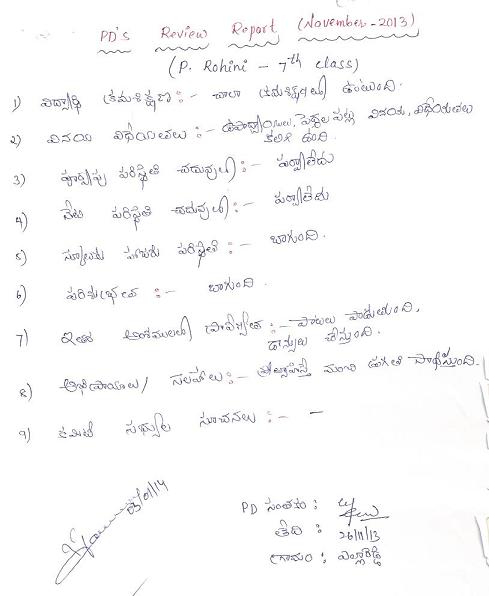 PD's Review Report (November-2013)
(P. Rohini - 7th class)
1) విద్యార్థి క్రమశిక్షణ :- చాలా క్రమశిక్షణలో ఉంటుంది.
2) వినయ విధేయతలు :- ఉపాధ్యాయులు, పెద్దల పట్ల వినయ, విధేయతలు
కలిగి ఉంది.
3) పూర్వపు పరిస్థితి చదువులో :- పర్వాలేదు
4) నేటి పరిస్థితి చదువులో :- పర్వాలేదు
5) స్కూలుకు హాజరు పరిస్థితి :- బాగుంది.
6) పరిశుభ్రత :- బాగుంది.
7) ఇతర అంశములలో ప్రావీణ్యత :- పాటలు పాడుతుంది,
డాన్సులు చేస్తుంది.
8) అభిప్రాయాలు/ సలహాలు :- ప్రోత్సహిస్తే మంచి ప్రగతి సాధిస్తుంది.
9) కమిటీ సభ్యుల సూచనలు :- -
03/01/14
PD సంతకం :
తేది : 26/11/13
గ్రామం : ఎల్లారెడ్డి